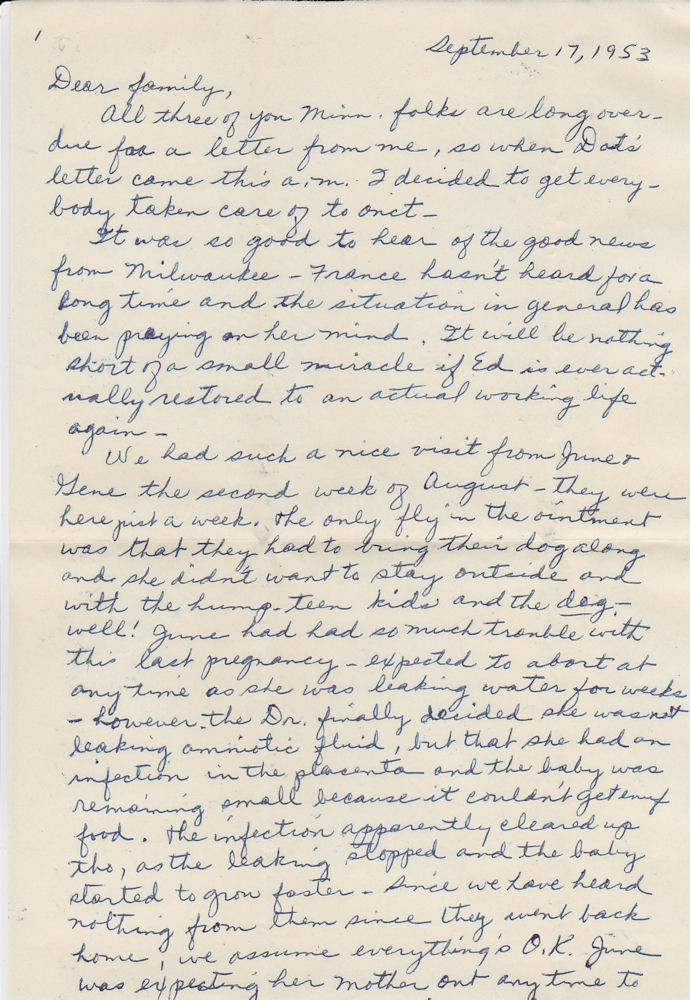 1
September 17, 1953
Dear family,
All three of you Minn. folks are long over-
due for a letter from me, so when Dot's
letter came this a.m. I decided to get every-
body taken care of to onct -
It was so good to hear of the good news
from Milwaukee - France hasn't heard for a
long time and the situation in general has
been preying on her mind. It will be nothing
short of a small miracle if Ed is ever act-
ually restored to an actual working life
again -
We had such a nice visit from June &
Gene the second week of August - they were
here just a week. The only fly in the ointment
was that they had to bring their dog along
and she didn't want to stay outside and
with the hump-teen kids and the dog -
well! June had had so much trouble with
this last pregnancy - expected to abort at
any time as she was leaking water for weeks
- however the Dr. finally decided she was not
leaking amniotic fluid, but that she had an
infection in the placenta and the baby was
remaining small because it couldn't get enuf
food. The infection apparently cleared up
tho, as the leaking stopped and the baby
started to grow faster - Since we have heard
nothing from them since they went back
home, we assume everything's O.K. June
was expecting her mother out any time to